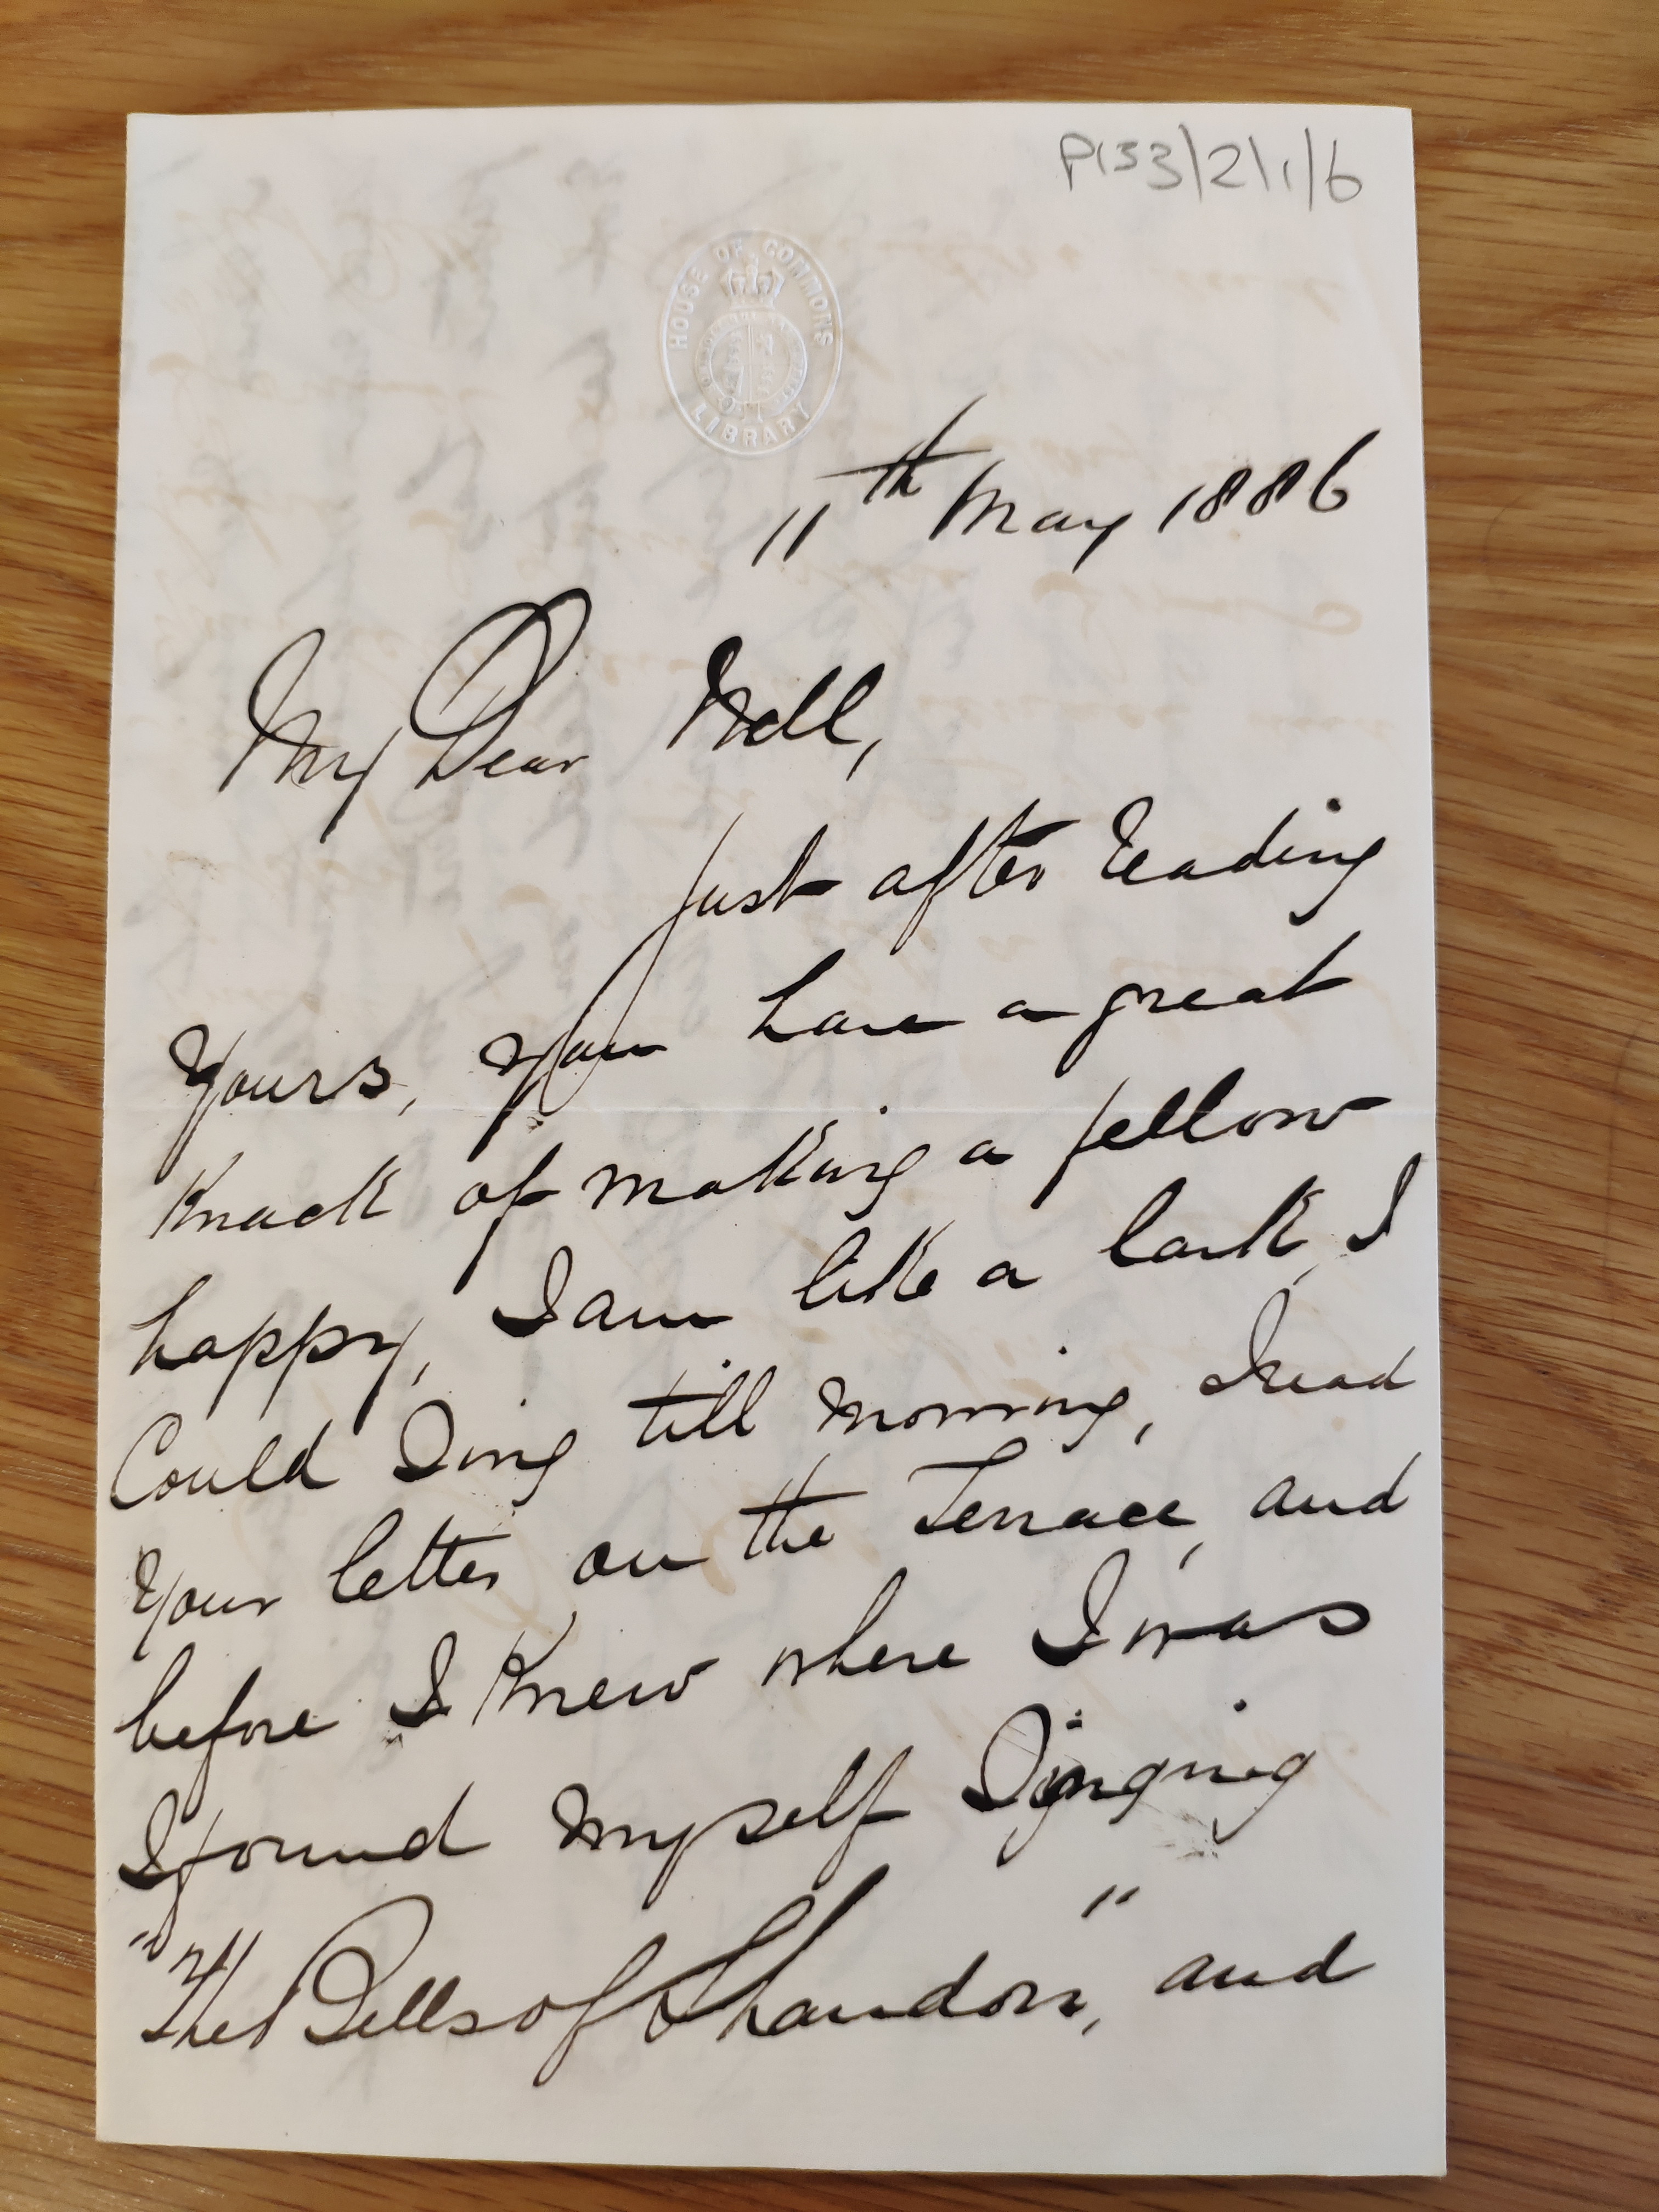 P133/2/1/6
HOUSE OF COMMONS
LIBRARY
11th May 1886
My Dear Nell,
Just after reading
Yours, you have a great
Knack of making a fellow
happy, I am like a lark, I
Could Sing till morning, I read
Your letter on the Terrace, and
before I Knew where I was
I found myself Singing
"The Bells of Shandon," and